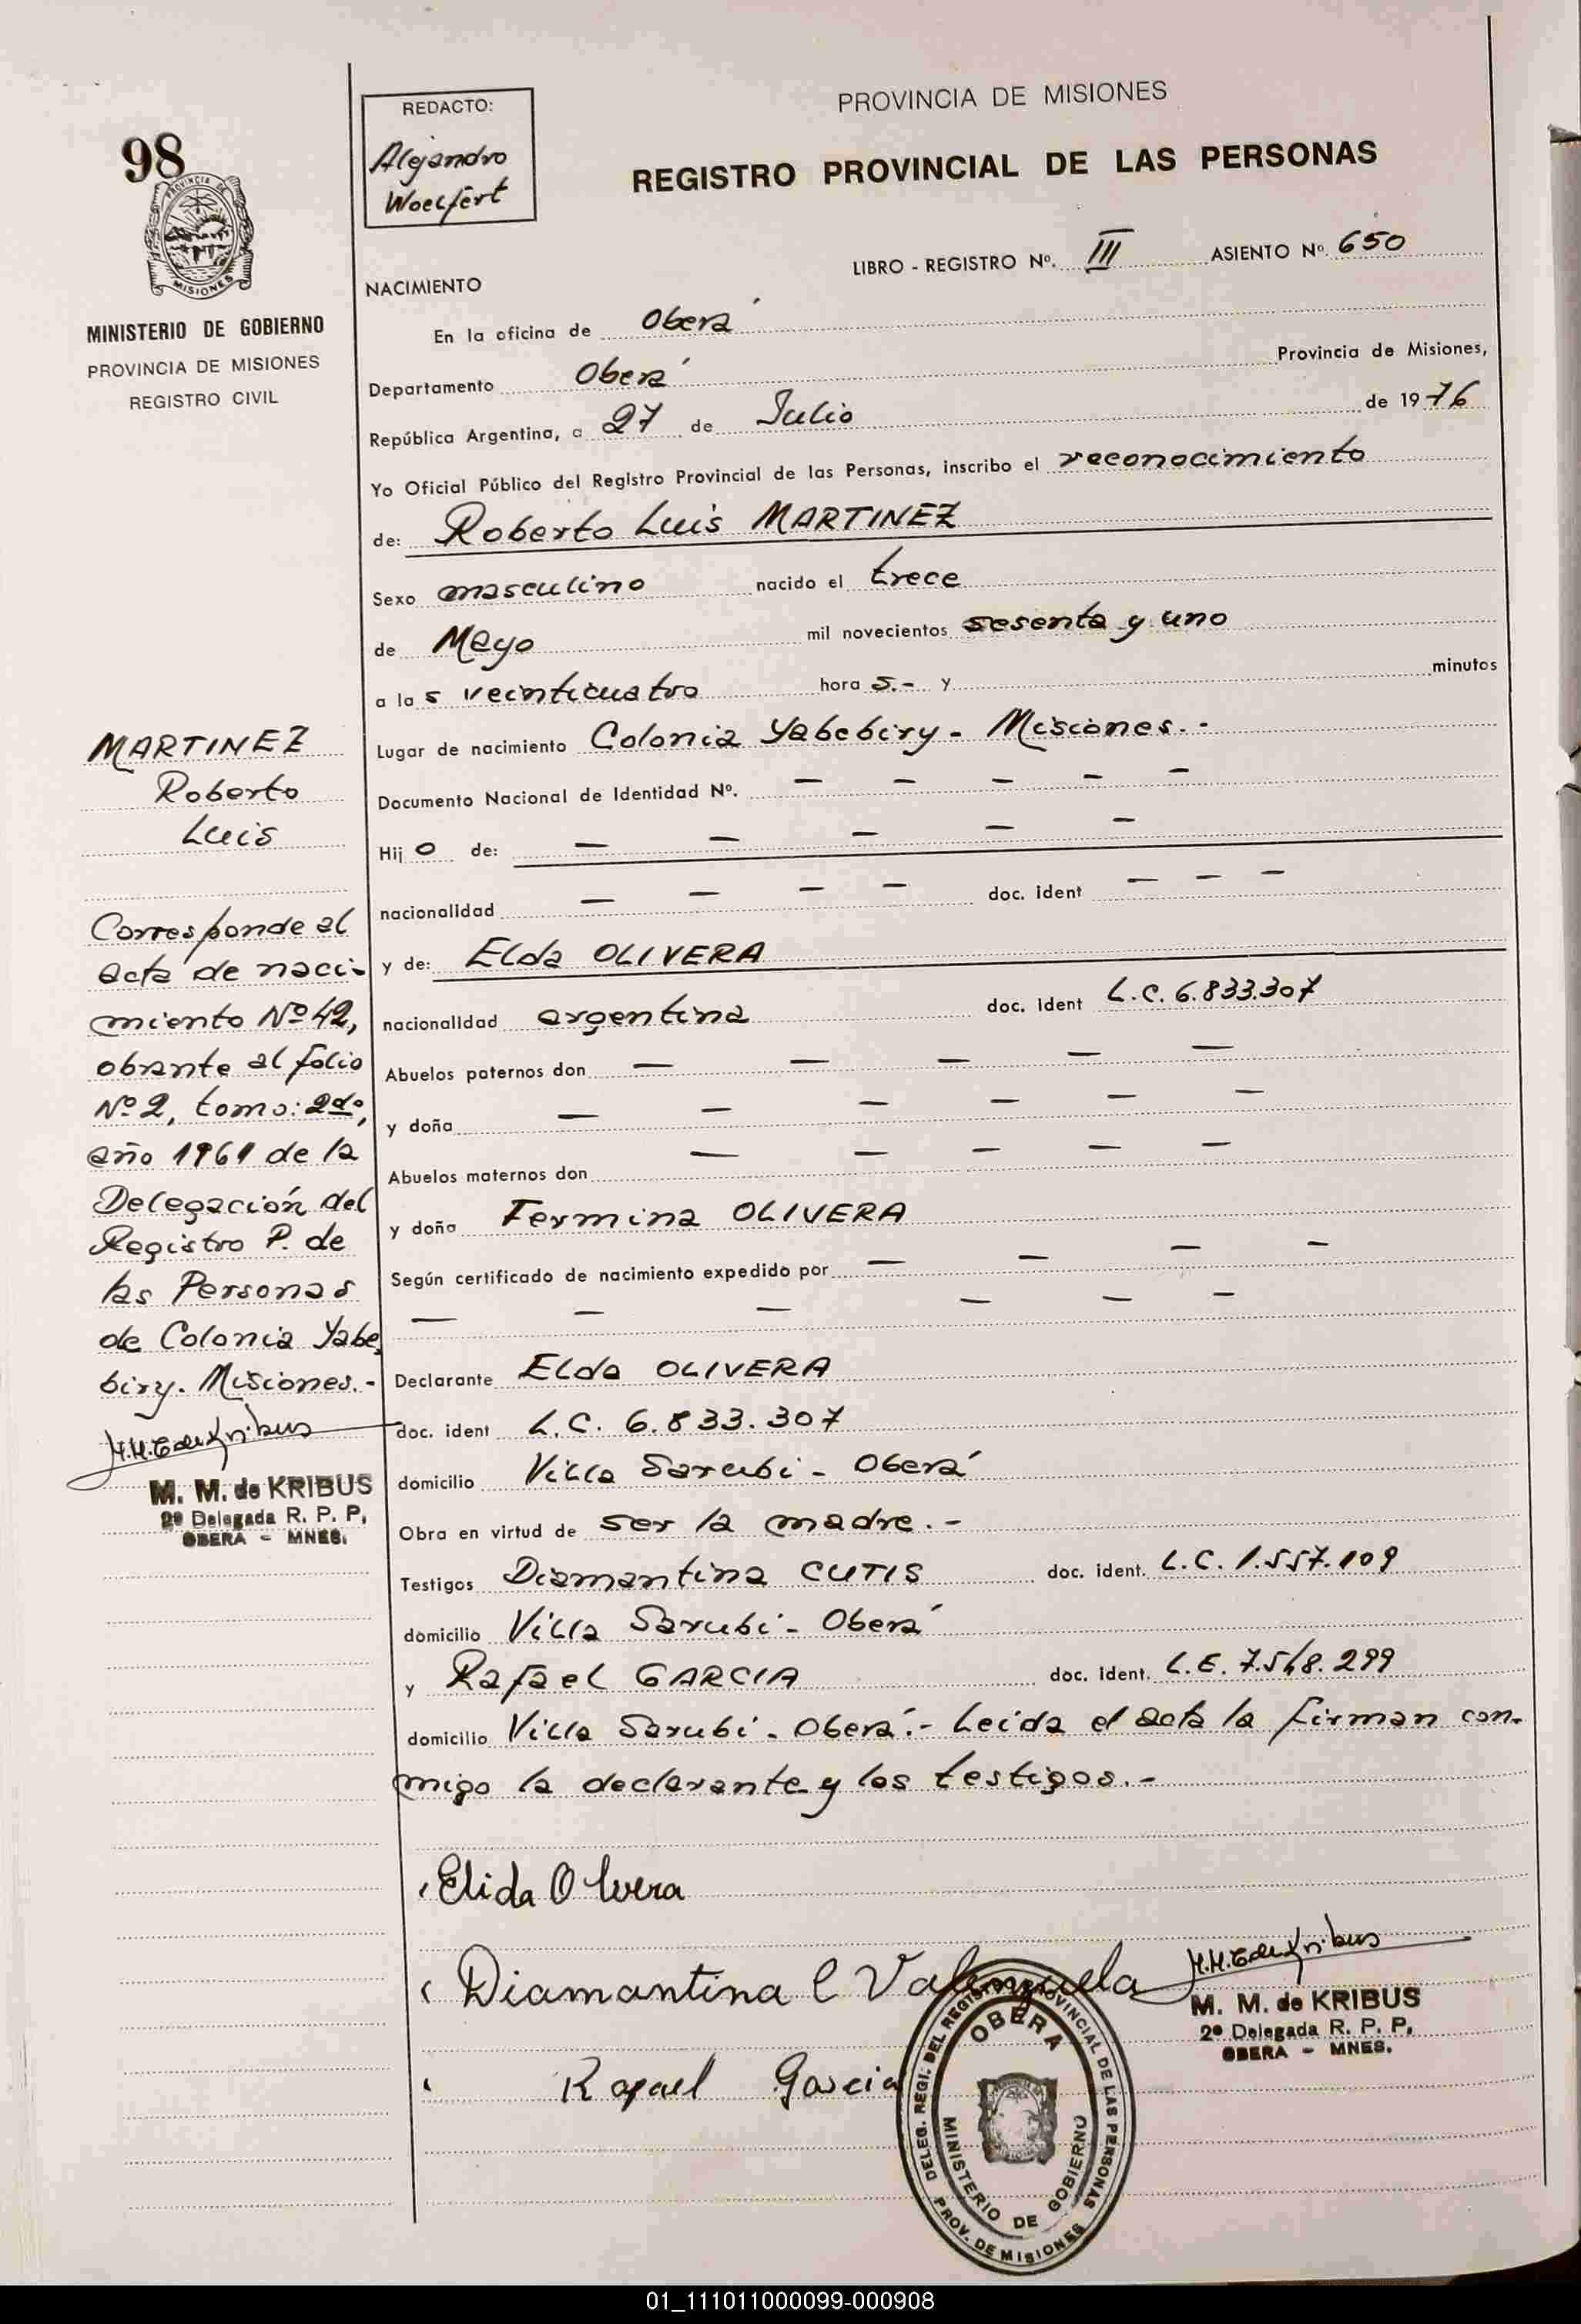 98
PROVINCIA DE
MISIONES
MINISTERIO DE GOBIERNO
PROVINCIA DE MISIONES
REGISTRO CIVIL
REDACTO:
Alejandro
Woelfert
PROVINCIA DE MISIONES
REGISTRO PROVINCIAL DE LAS PERSONAS
LIBRO - REGISTRO Nº. III ASIENTO Nº. 650
NACIMIENTO
En la oficina de Oberá
Departamento Oberá Provincia de Misiones,
República Argentina, a 27 de Julio de 1976
Yo Oficial Público del Registro Provincial de las Personas, inscribo el reconocimiento
de: Roberto Luis MARTINEZ
Sexo masculino nacido el trece
de Mayo mil novecientos sesenta y uno
a las veinticuatro hora s.- y minutos
Lugar de nacimiento Colonia Yabebiry - Misiones.-
Documento Nacional de Identidad Nº. — — — — —
Hijo de: — — — — —
nacionalidad — — — — doc. ident — — —
y de: Elda OLIVERA
nacionalidad argentina doc. ident L.C. 6.833.307
Abuelos paternos don — — — — —
y doña — — — — — —
Abuelos maternos don — — — — —
y doña Fermina OLIVERA
Según certificado de nacimiento expedido por — — — —
— — — — — —
Declarante Elda OLIVERA
doc. ident L.C. 6.833.307
domicilio Villa Sarubi - Oberá
Obra en virtud de ser la madre.-
Testigos Diamantina CUTIS doc. ident. L.C. 1.557.109
domicilio Villa Sarubi - Oberá
y Rafael GARCIA doc. ident. L.E. 7.548.299
domicilio Villa Sarubi - Oberá.- Leida el acta la firman con-
migo la declarante y los testigos.-
MARTINEZ
Roberto
Luis
Corresponde al
acta de naci-
miento Nº 42,
obrante al folio
Nº 2, tomo: 2do,
año 1961 de la
Delegación del
Registro P. de
las Personas
de Colonia Yabe
biry. Misiones.-
M. M. de KRIBUS
2º Delegada R. P. P.
OBERA - MNES.
Elida Olivera
Diamantina C Valenzuela
Rafael Garcia
M. M. de KRIBUS
2º Delegada R. P. P.
OBERA - MNES.
DELEG. REGI: DEL REGISTRO PROVINCIAL DE LAS PERSONAS
OBERA
MINISTERIO DE GOBIERNO
PROV. DE MISIONES
01_111011000099-000908